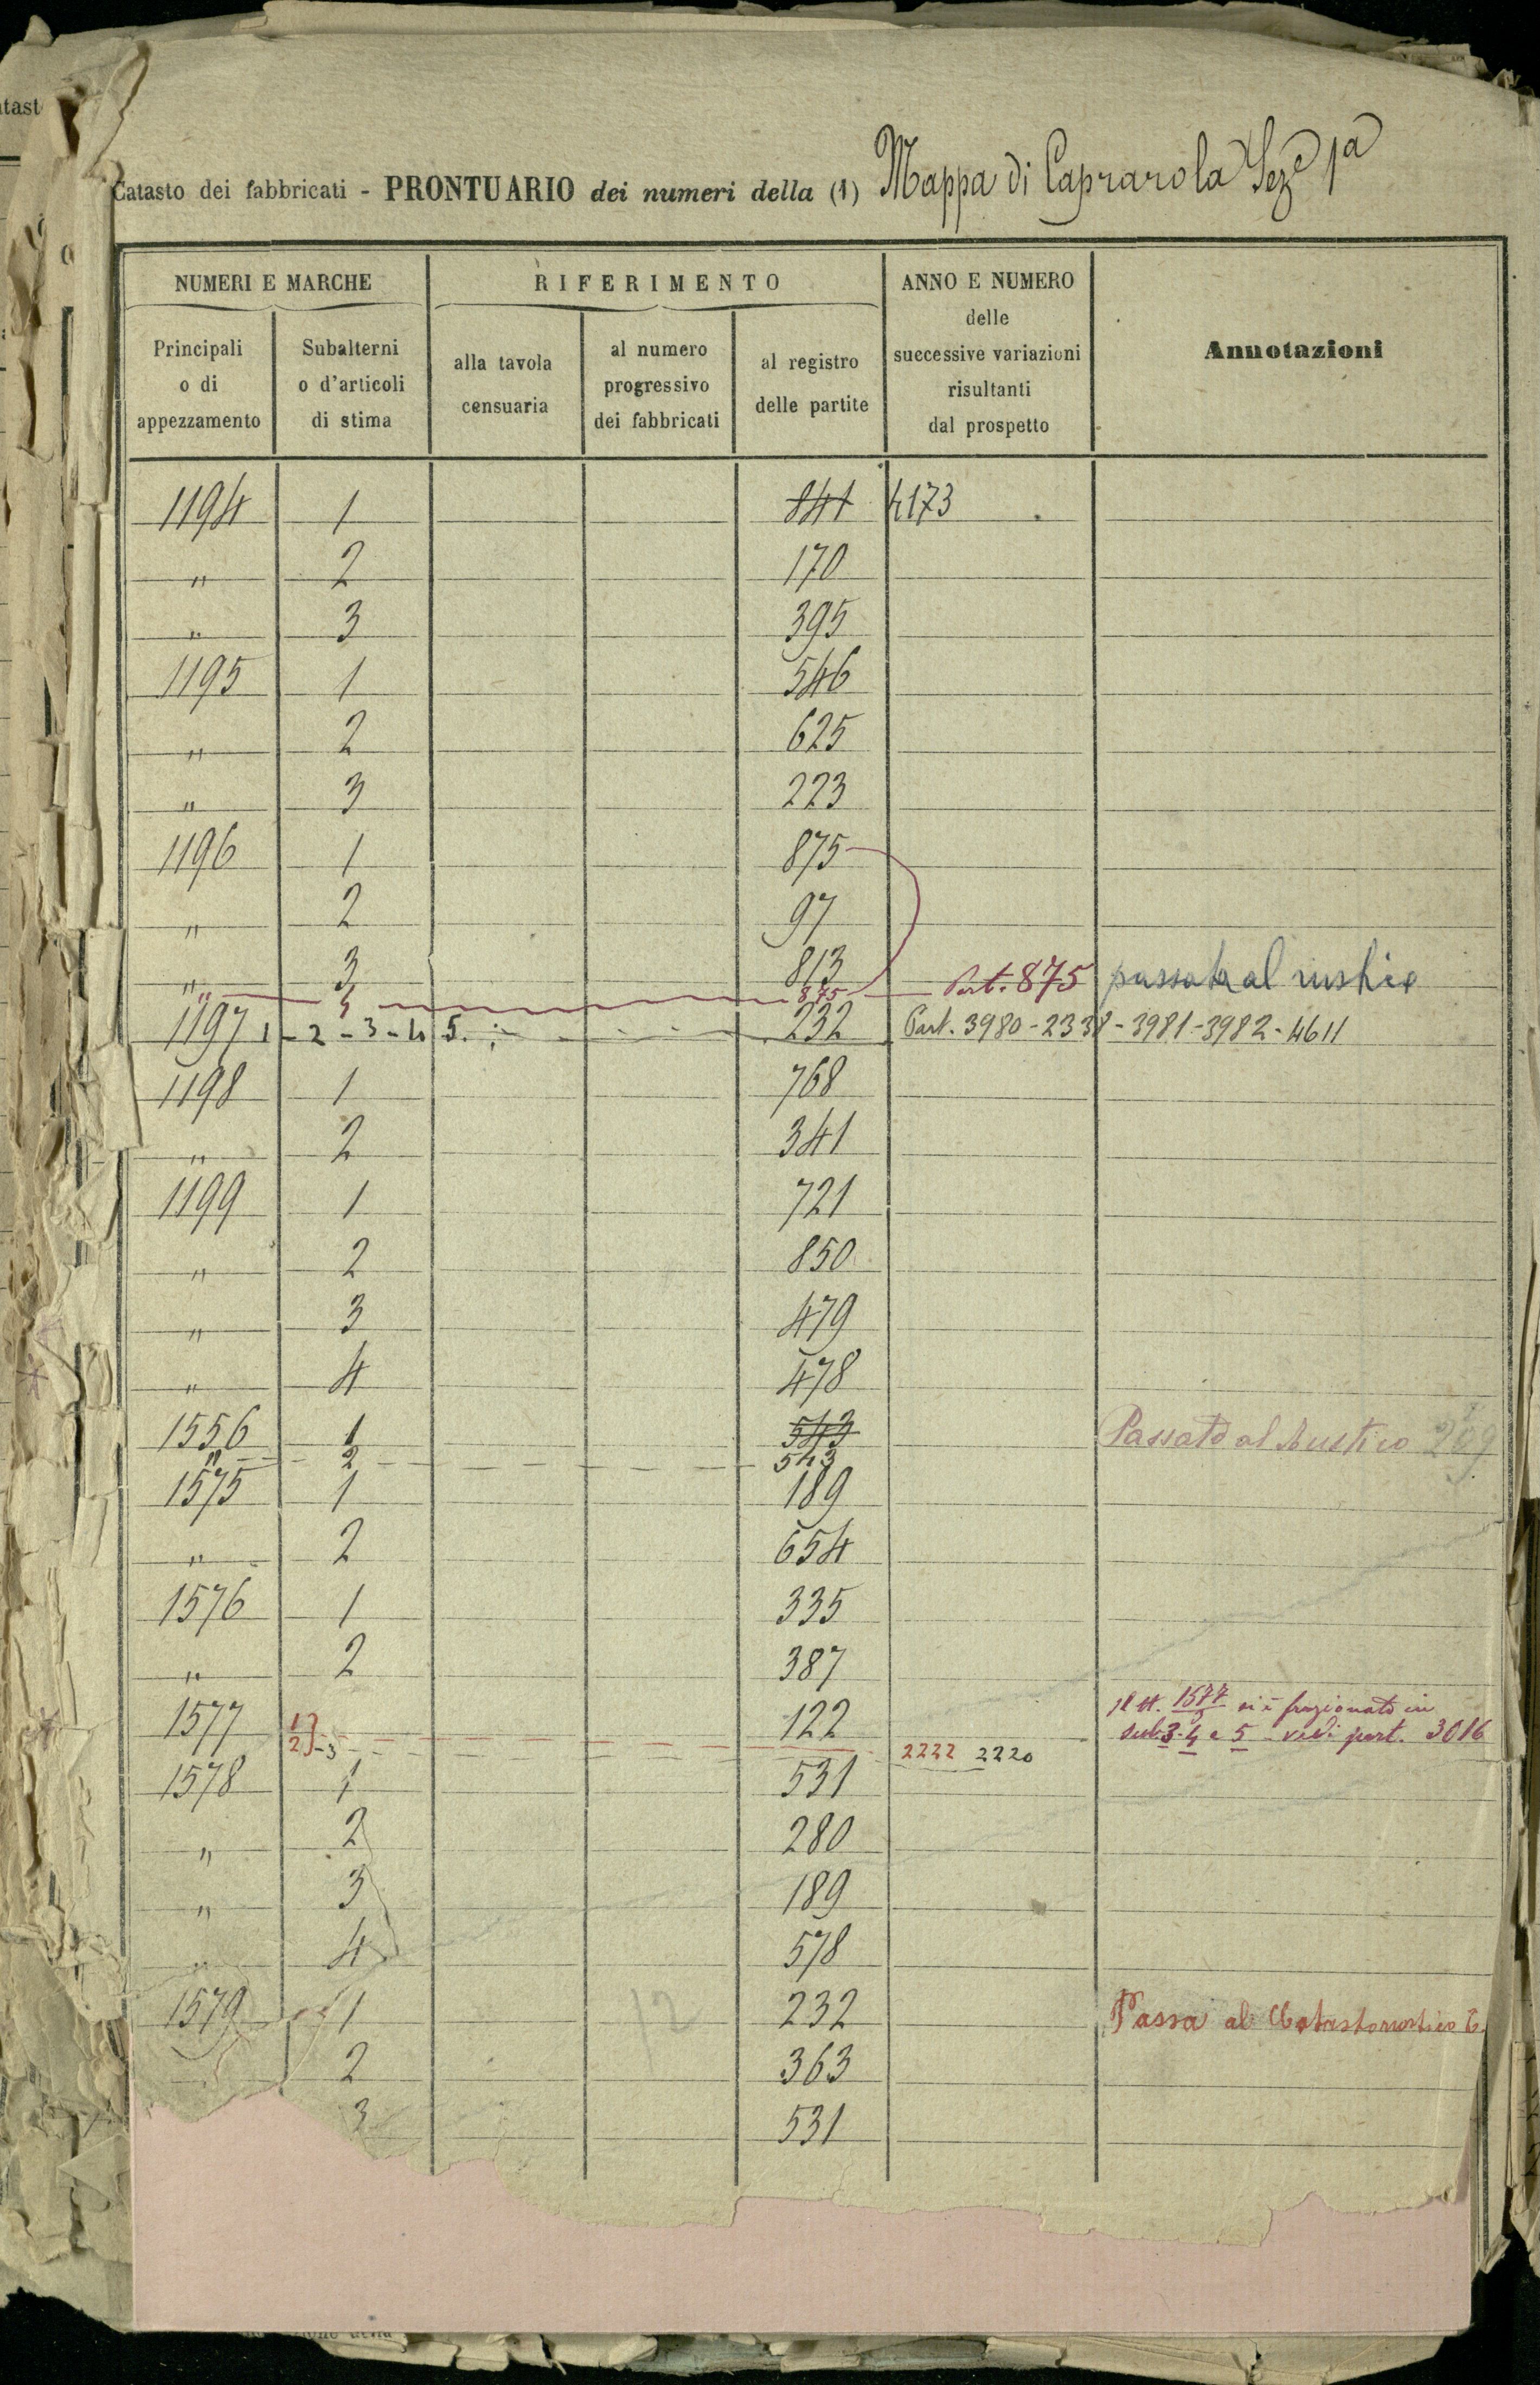 Catasto dei fabbricati - PRONTUARIO dei numeri della (1) Mappa di Caprarola Seze 1a
NUMERI E MARCHE RIFERIMENTO ANNO E NUMERO delle successive variazioni risultanti dal prospetto Annotazioni
Principali o di appezzamento Subalterni o d'articoli di stima alla tavola censuaria al numero progressivo dei fabbricati al registro delle partite
1194 1 841 4173
" 2 170
" 3 395
1195 1 546
" 2 625
" 3 223
1196 1 875
" 2 97
" 3 813
" 4 875 Part. 875 passata al rustico
1197 1-2-3-4 5. 232 Part. 3980-2338-3981-3982-4611
1198 1 768
" 2 341
1199 1 721
" 2 850
" 3 479
" 4 478
1556 1 543 Passato al Rustico 209
" 2 543
1575 1 189
" 2 654
1576 1 335
" 2 387
1577 122 1577 si è frazionato in
sub. 3-4 e 5 vedi part. 3016
1 2}-3 2222 2220
1578 1 531
" 2 280
" 3 189
" 4 578
1579 1 12 232 Passa al Catasto rustico
2 363
3 531